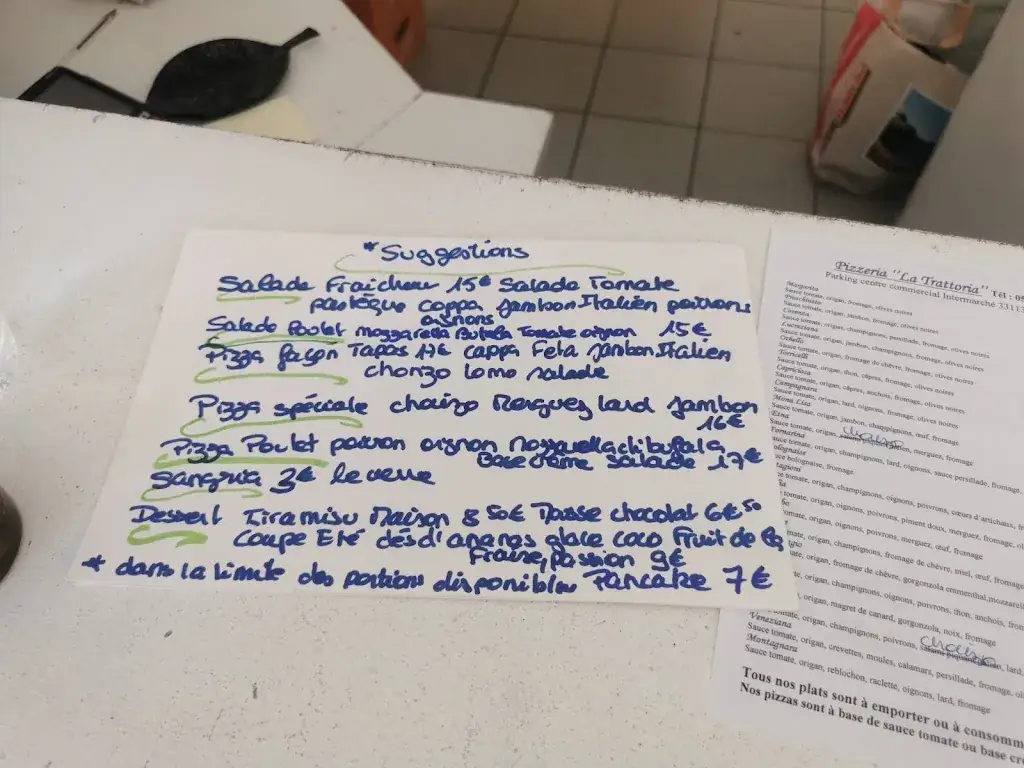 *Suggestions
Salade Fraicheur 15€ Salade Tomate
pastèque cappa Jambon Italien poivrons
oignons
Salade Poulet mozzarella Bufala Tomate oignon 15€
Pizza façon Tapas 17€ cappa Feta Jambon Italien
chorizo lomo salade
Pizza spéciale chorizo Merguez lard Jambon
16€
Pizza Poulet poivron oignon Mozzarella di bufala
Base crème salade 17€
Sangria 3€ le verre
Dessert Tiramisu Maison 8 50€ Mousse chocolat 6€50
Coupe Eté dés d'ananas glace coco Fruit de la
Fraise, passion 9€
* dans la limite des portions disponibles Pancake 7€
Pizzeria "La Trattoria" Tél : 05
Parking centre commercial Intermarché 3313
Margarita
Sauce tomate, origan, fromage, olives noires
Sauce tomate, origan, jambon, fromage, olives noires
Sauce tomate, origan, champignons, persillade, fromage, olives noires
Sauce tomate, origan, jambon, champignons, fromage, olives noires
Sauce tomate, origan, fromage de chèvre, fromage, olives noires
Sauce tomate, origan, thon, câpres, fromage, olives noires
Capriciosa
Sauce tomate, origan, câpres, anchois, fromage, olives noires
Campagnara
Sauce tomate, origan, lard, oignons, fromage, olives noires
Mona Lisa
Sauce tomate, origan, jambon, champignons, œuf, fromage
Etna
Sauce tomate, origan, chorizo, merguez, fromage
Sauce tomate, origan, champignons, lard, oignons, sauce persillade, fromage
bolognaise, fromage
tomate, origan, champignons, oignons, poivrons, cœurs d'artichaux,
tomate, origan, oignons, poivrons, piment doux, merguez,
tomate, origan, oignons, poivrons, merguez, œuf, fromage
origan, champignons, fromage de chèvre, miel, œuf,
origan, fromage de chèvre, gorgonzola emmenthal,
origan, champignons, oignons, poivrons, thon, anchois,
origan, magret de canard, gorgonzola, noix, fromage
origan, champignons, poivrons, chorizo lard
Veneziana
Sauce tomate, origan, crevettes, moules, calamars, persillade, fromage,
Montagnara
Sauce tomate, origan, reblochon, raclette, oignons, lard, fromage
Tous nos plats sont à emporter ou à consomm
Nos pizzas sont à base de sauce tomate ou base cr